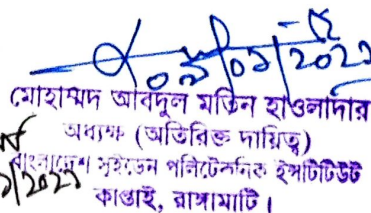 ০৯/০১/2022
মোহাম্মদ আবদুল মতিন হাওলাদার
অধ্যক্ষ (অতিরিক্ত দায়িত্ব)
বাংলাদেশ সুইডেন পলিটেকনিক ইন্সটিটিউট
কাপ্তাই, রাঙ্গামাটি।